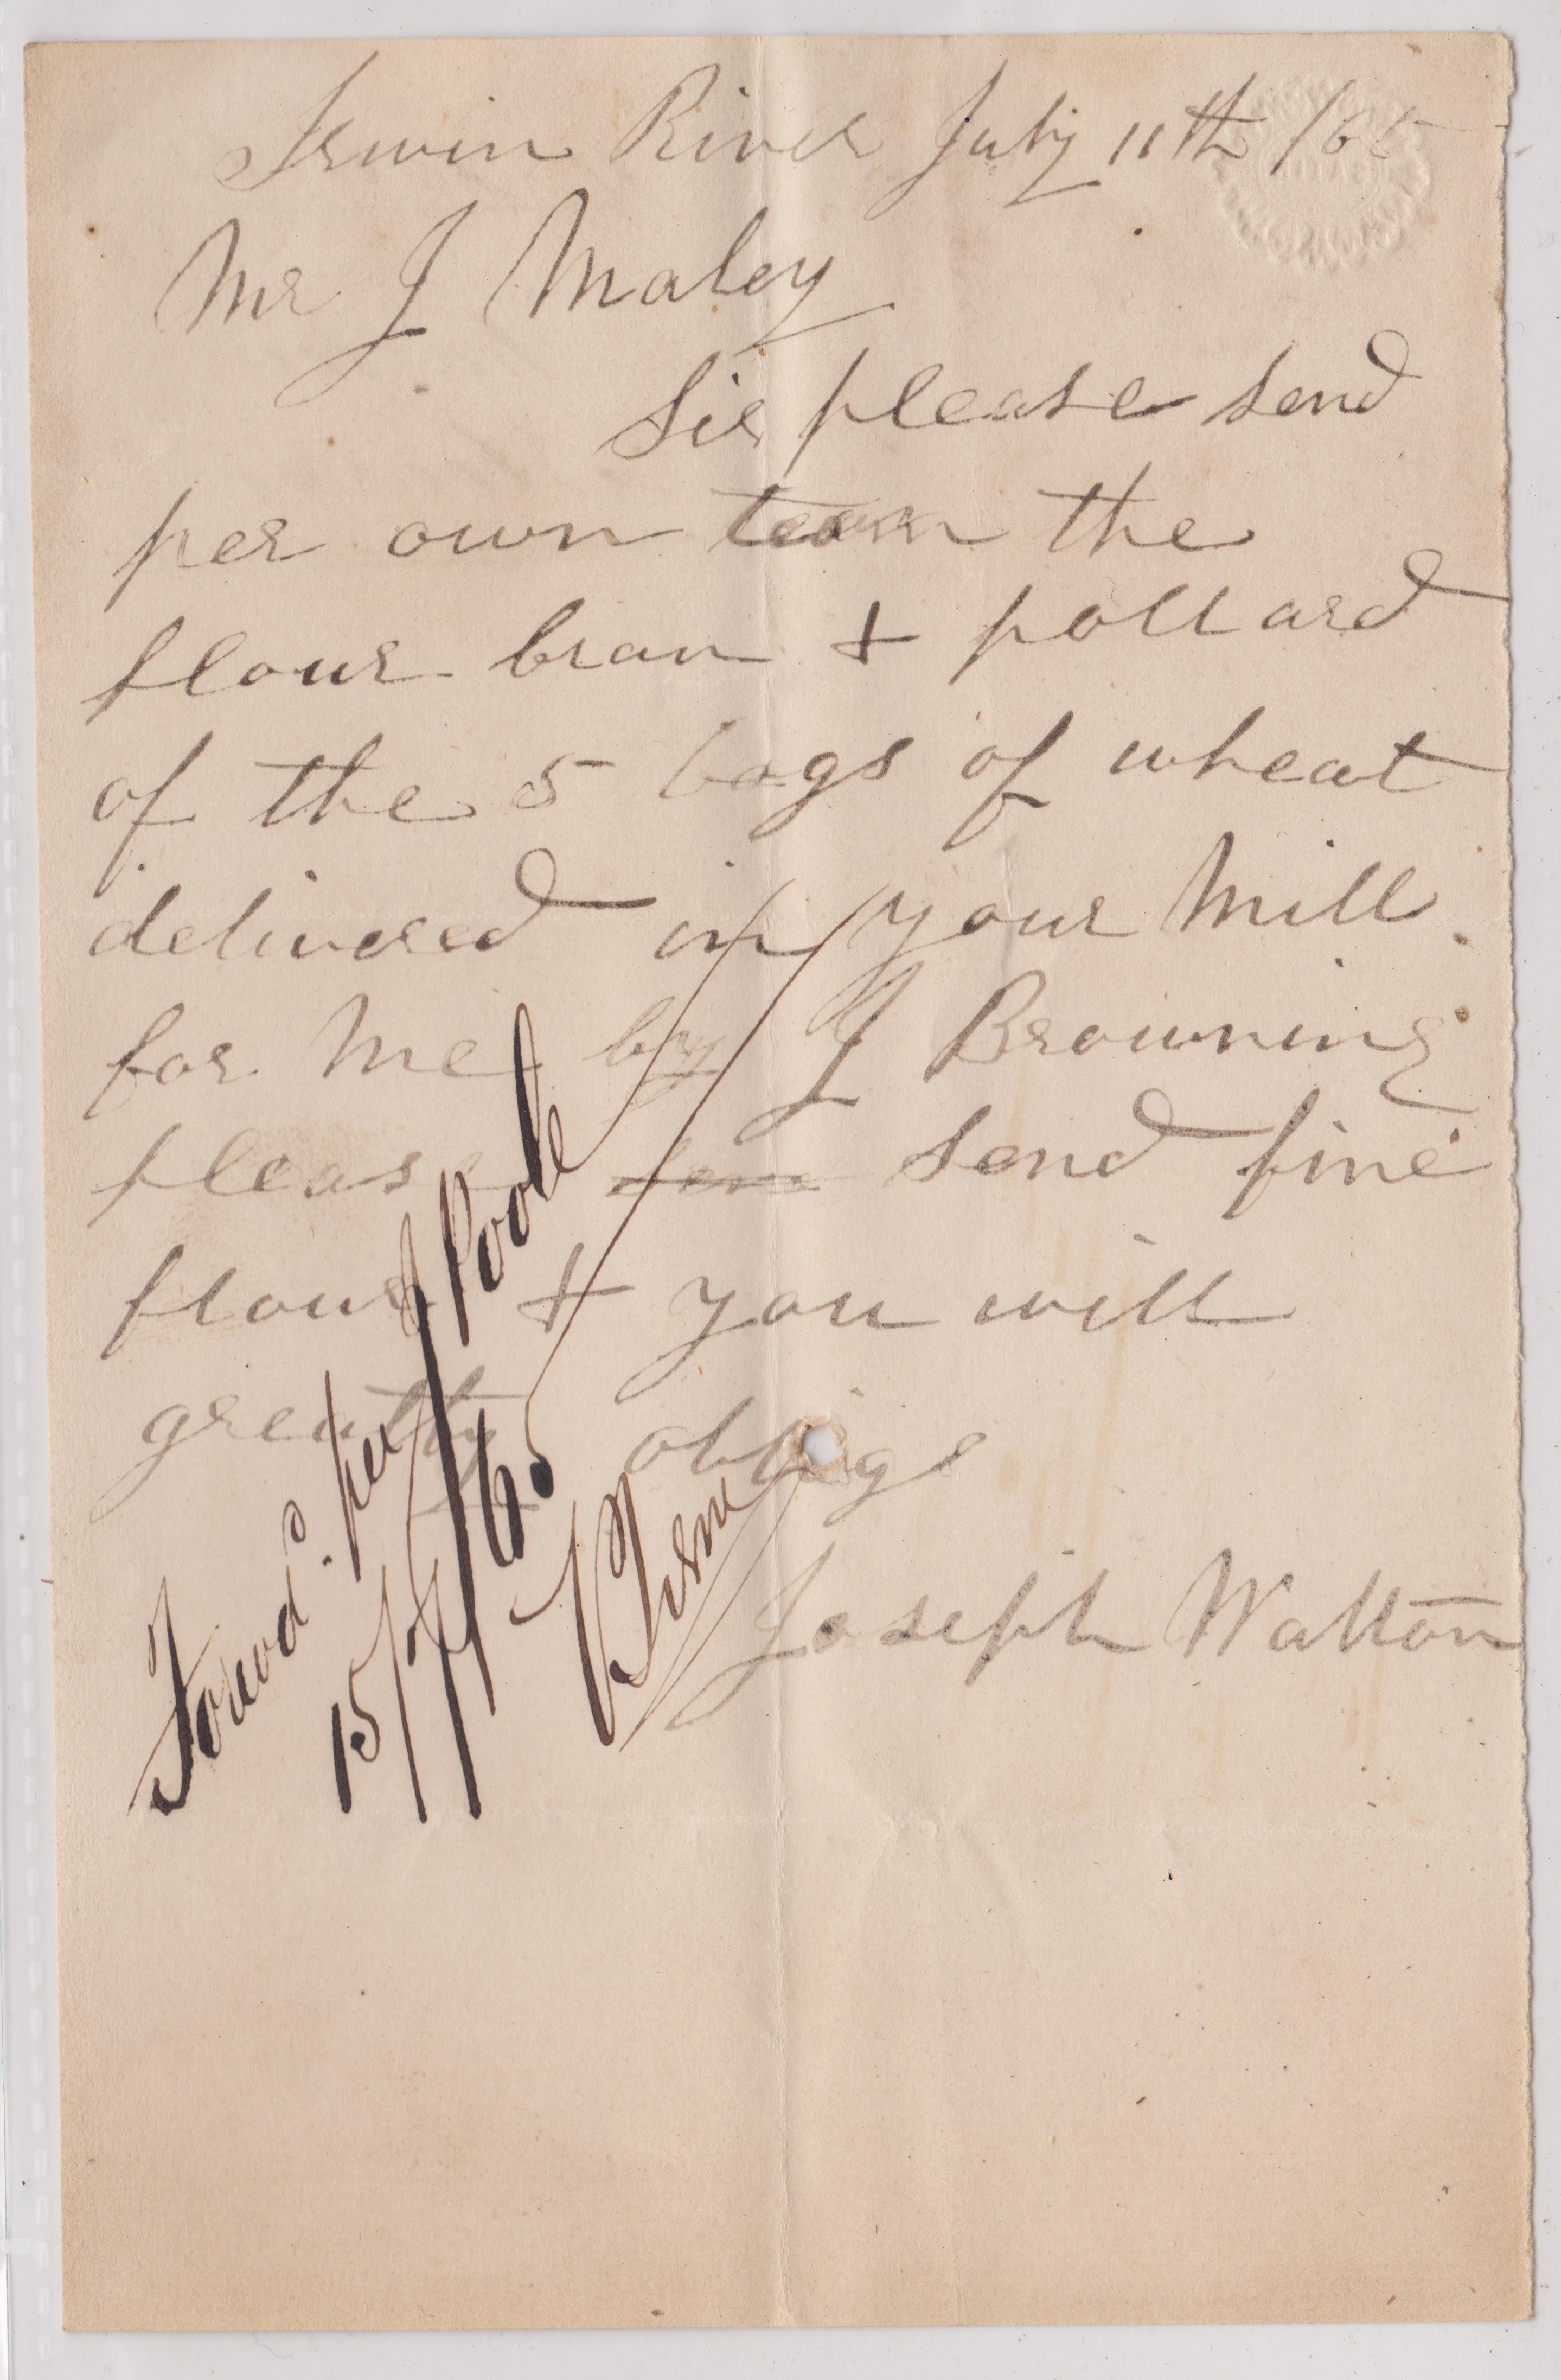 Irwin River July 11th /65
Mr J Maley
Sir please send
per own team the
flour bran + pollard
of the 5 bags of wheat
delivered in your Mill
for Me by J Browning
please sen send fine
flour + you will
greatly oblige
Joseph Walton
Forwd. per J Poole
15/7/65